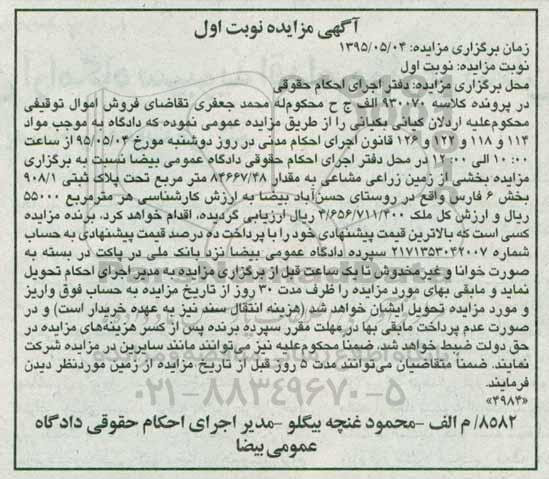 آگهی مزایده نوبت اول
زمان برگزاری مزایده: ۱۳۹۵/۰۵/۰۴
نوبت مزایده: نوبت اول
محل برگزاری مزایده: دفتر اجرای احکام حقوقی
در پرونده کلاسه ۹۳۰۰۷۰ الف ج ح محکوم‌له محمد جعفری تقاضای فروش اموال توقیفی
محکوم‌علیه اردلان کیانی یکیانی را از طریق مزایده عمومی نموده که دادگاه به موجب مواد
۱۱۴ و ۱۱۸ و ۱۲۲ و ۱۲۶ قانون اجرای احکام مدنی در روز دوشنبه مورخ ۹۵/۰۵/۰۴ از ساعت
۱۰:۰۰ الی ۱۲:۰۰ در محل دفتر اجرای احکام حقوقی دادگاه عمومی بیضا نسبت به برگزاری
مزایده بخشی از زمین زراعی مشاعی به مقدار ۸۴۶۶۷/۴۸ متر مربع تحت پلاک ثبتی ۹۰۸/۱
بخش ۶ فارس واقع در روستای حسن‌آباد بیضا به ارزش کارشناسی هر مترمربع ۵۵۰۰۰
ریال و ارزش کل ملک ۴/۶۵۶/۷۱۱/۴۰۰ ریال ارزیابی گردیده، اقدام خواهد کرد. برنده مزایده
کسی است که بالاترین قیمت پیشنهادی خود را با پرداخت ده درصد قیمت پیشنهادی به حساب
شماره ۲۱۷۱۳۵۳۰۴۲۰۰۷ سپرده دادگاه عمومی بیضا نزد بانک ملی در پاکت در بسته به
صورت خوانا و غیر مخدوش تا یک ساعت قبل از برگزاری مزایده به مدیر اجرای احکام تحویل
نماید و مابقی بهای مورد مزایده را ظرف مدت ۳۰ روز از تاریخ مزایده به حساب فوق واریز
و مورد مزایده تحویل ایشان خواهد شد. (هزینه انتقال سند نیز به عهده خریدار است) و در
صورت عدم پرداخت مابقی بها در مهلت مقرر سپرده برنده پس از کسر هزینه‌های مزایده در
حق دولت ضبط خواهد شد. ضمنا محکوم‌علیه نیز می‌توانند مانند سایرین در مزایده شرکت
نمایند. ضمنا متقاضیان می‌توانند مدت ۵ روز قبل از تاریخ مزایده از زمین موردنظر دیدن
فرمایند.
«۴۹۸۴»
۸۵۸۲/ م الف -محمود غنچه بیگلو -مدیر اجرای احکام حقوقی دادگاه
عمومی بیضا
۰۲۱-۸۸۳۴۹۶۷۰-۵